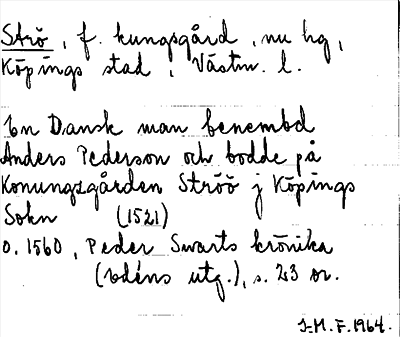 Strö, f. kungsgård, nu hg,
Köpings stad, Västm. l.
En Dansk man benembd
Anders Pederson och bodde på
Konungzgården Ströö j Köpings
Sokn (1521)
o. 1560, Peder Swarts krönika
(Edéns utg.), s. 23 or.
I.M.F. 1964.